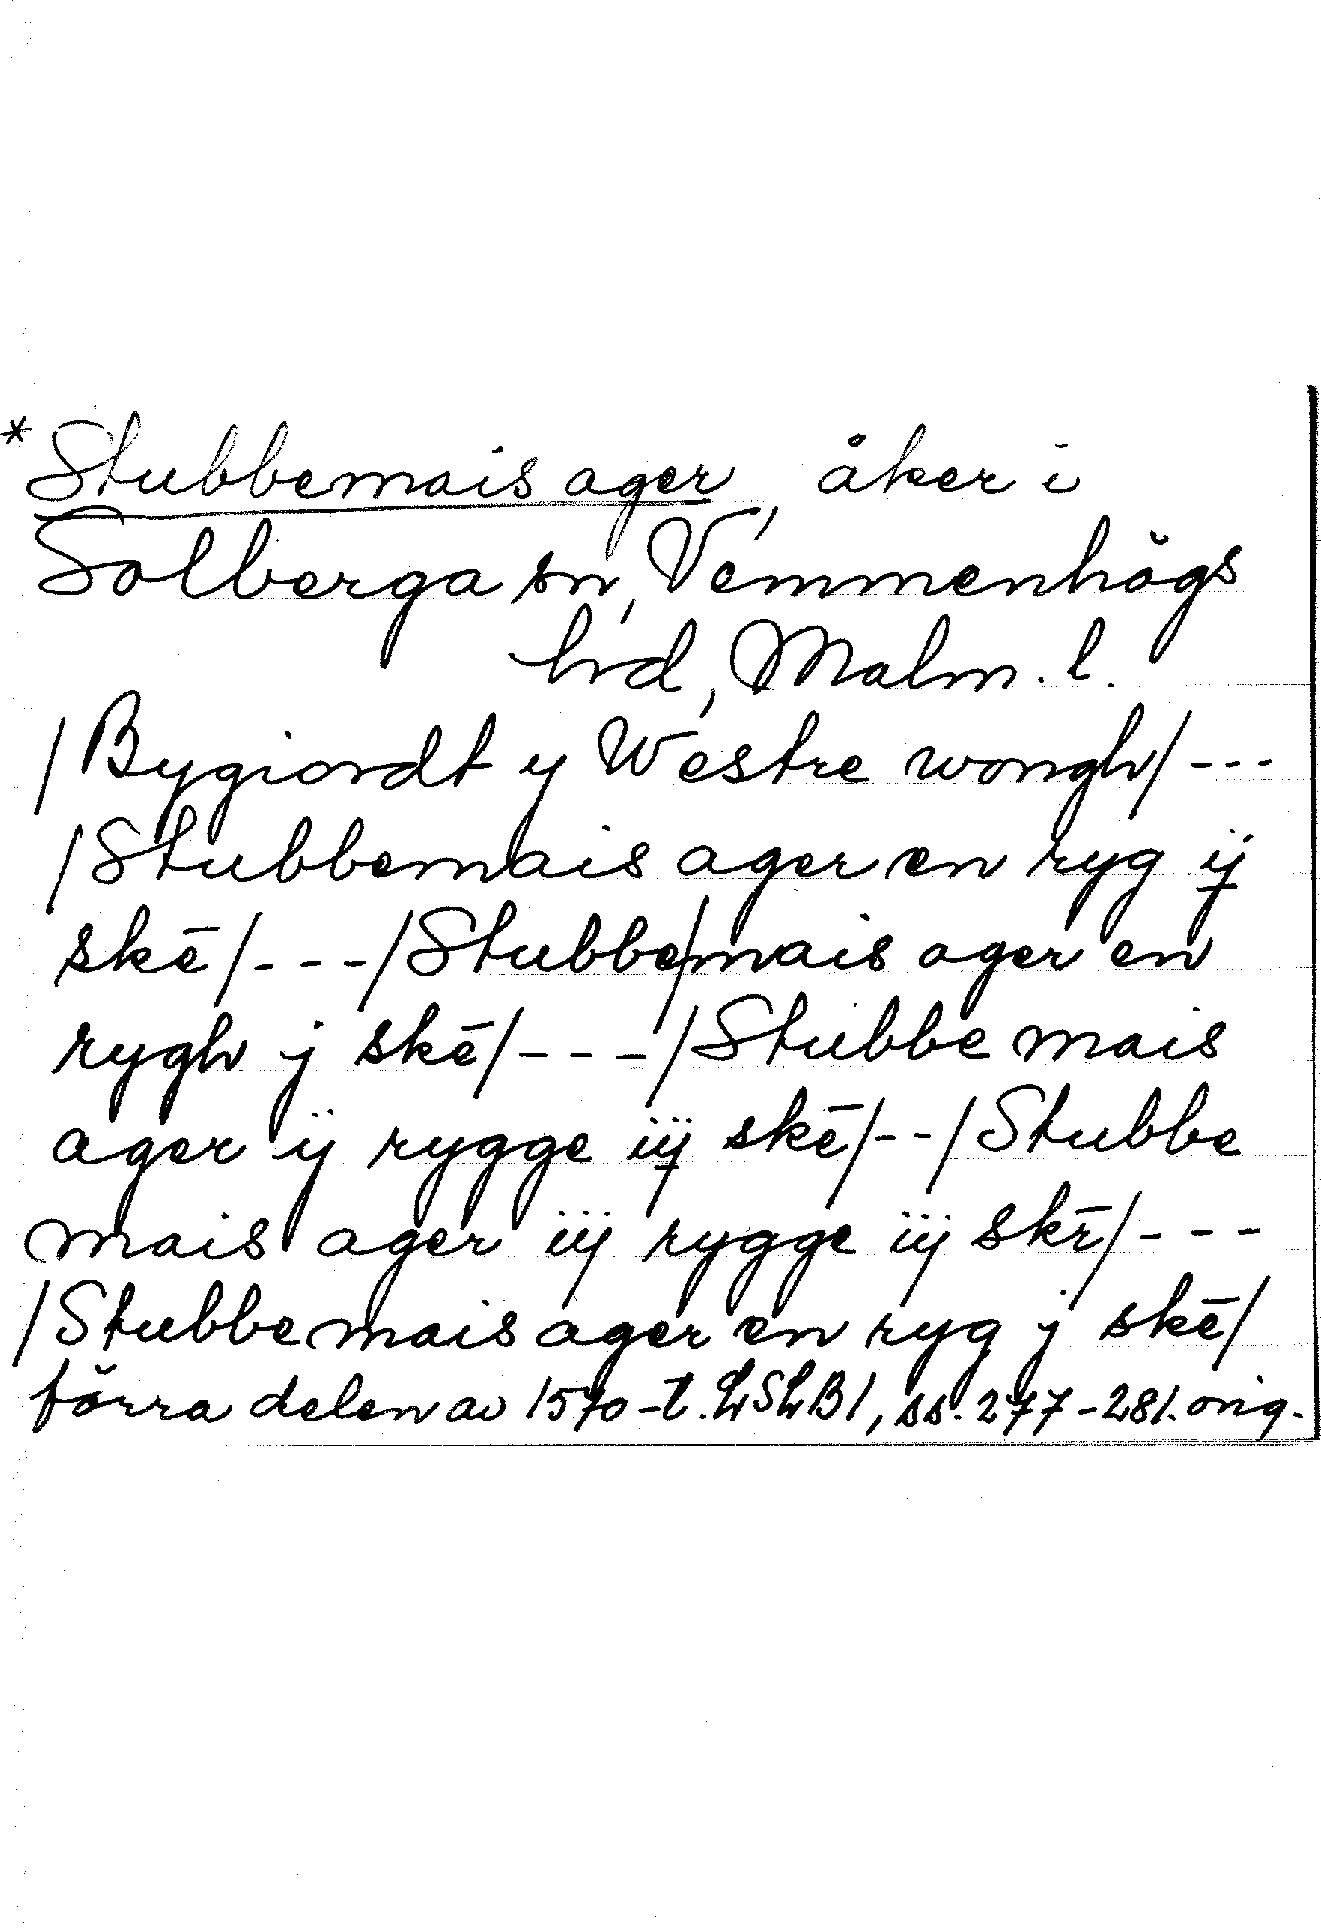 *Stubbemais ager, åker i
Solberga sn, Vemmenhögs
hrd, Malm. l.
/Bygiordt y Westre wongh/ ---
/Stubbemais ager en ryg ij
skē/---/Stubbe/mais ager en
rygh j skē/---/Stubbe mais
ager ij rygge iij skē/--/Stubbe
mais ager iij rygge iij skē/---
/Stubbemais ager en ryg j skē/
förra delen av 1570-t. LSLB1, ss. 277-281. orig.